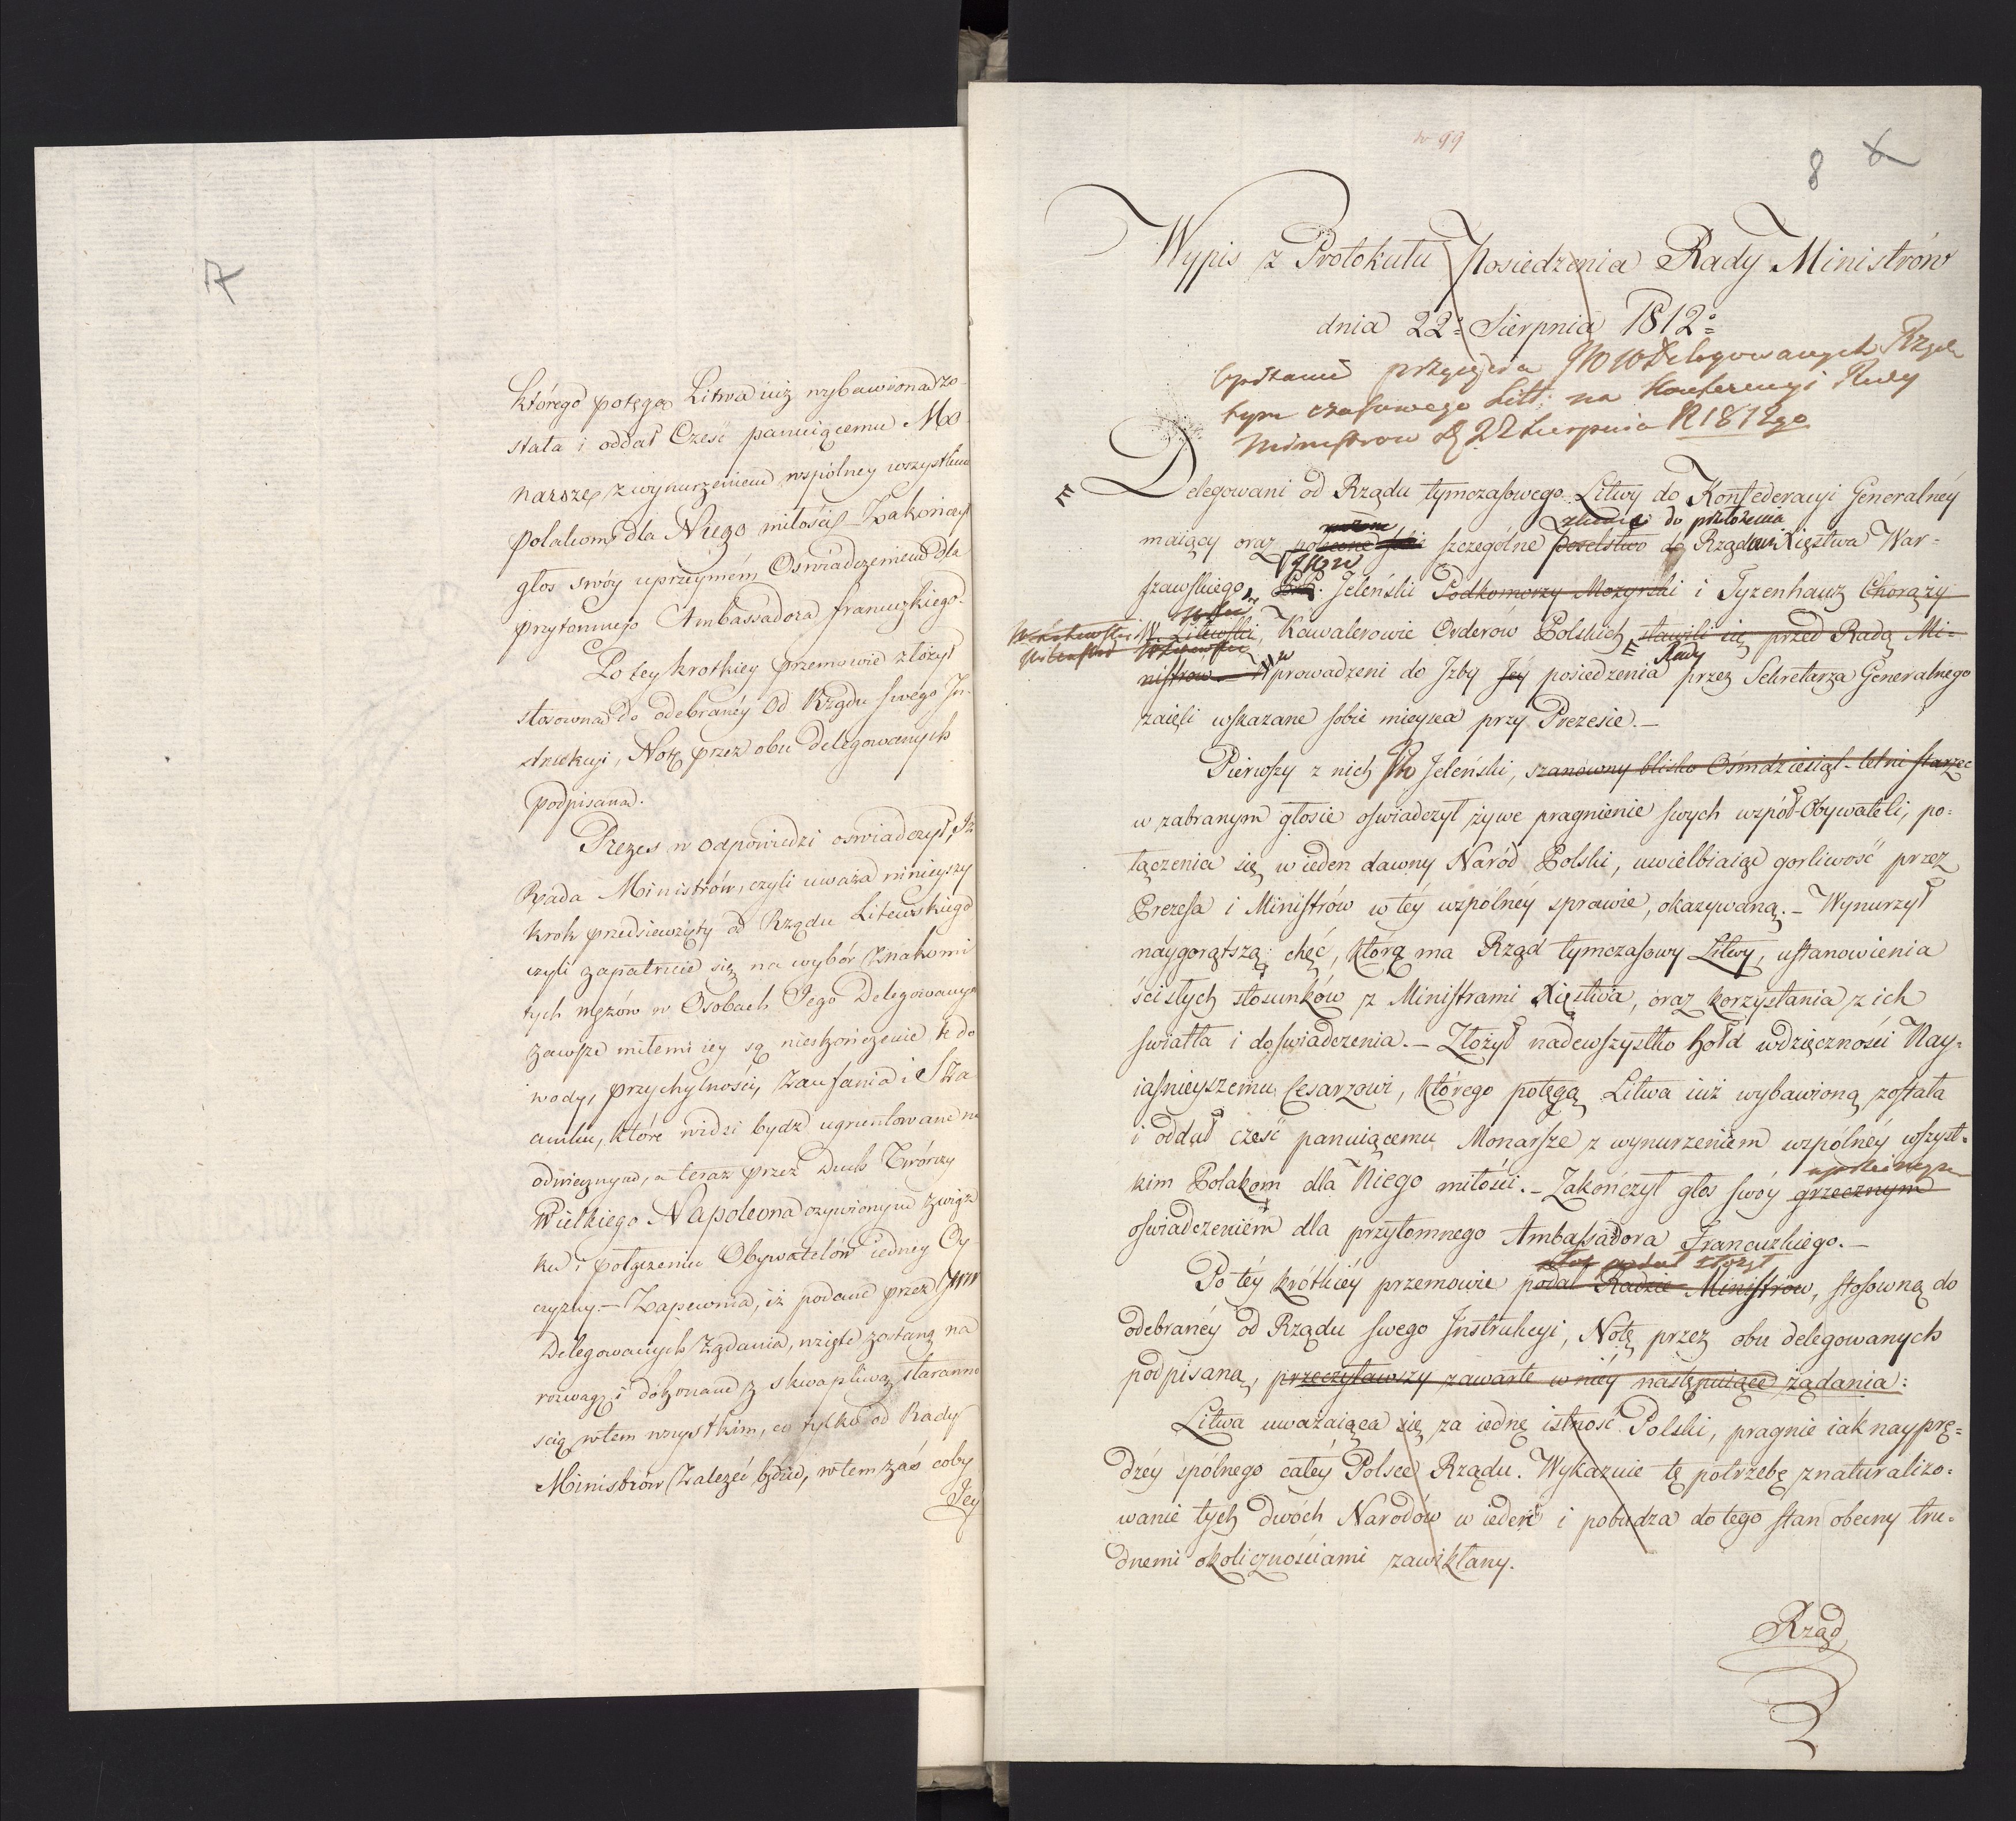 którego potęgą Litwa iuż wybawiona zo-
stała i oddał Cześć panuiącemu Mo-
narsze, z wynurzeniem wspólney wszystkim
Polakom, dla Niego miłości. – Zakończył
głos swóy uprzeymém Oświadczeniem dla
przytomnego Ambassadora francuzkiego.
Po tey krotkiey przemowie złożył
stosowną do odebranéy Od Rządu swego In-
strukcyi, Notę przez obu delegowanych
podpisaną.
Prezes w odpowiedzi oświadczył, Iż
Rada Ministrów, czyli uważa ninieyszy
krok przedsiewzięty od Rządu Litewskiego
czyli zapatruie się na wybór Znakomi
tych mężów w Osobach Iego Delegowanych
zawsze miłemi iey są nieskończenie te do
wody, przychylności, Zaufania i Sza
cunku, które widzi bydź ugruntowane na
odwiecznym, a teraz przez Duch Twórczy
Wielkiego Napoleona ożywionym związ
ku i połączeniu Obywatelów iedney Oy-
czyzny. – Zapewnia, iż podane przez
Delegowanych Żądania, wzięte zostaną na
rozwagę i dokonane z skwapliwą staranno
scią wtem wszystkim, co tylko od Rady
Ministrów Zależeć będzie, wtem zaś coby
Iey
8 6
Wypis z Protokułu Posiedzenia Rady Ministrów
dnia 22. Sierpnia 1812.
Opisanie przyięcia Delegowanych Rządu
tymczasowego Litt: na Konferencyi Rady
Ministrow d. 22 Sierpnia R 1812go
Delegowani od Rządu tymczasowego Litwy do Konfederacyi Generalnéy
zlecenie do przełożenia
maiący oraz szczególne poselstwo do Rządowi Xięztwa War-
szawskiego, Jeleński Podkomorzy Mozyrski i Tyzenhauz Chorąży
W. Litewski, Kawalerowie Orderów Polskich, stawili się przed Radą Mi-
Rady
nistrów. Wprowadzeni do Izby Jey posiedzenia przez Sekretarza Generalnego
zaięli wskazane sobie mieysca przy Prezesie. –
Pierwszy z nich JW Jeleński, szanowny blisko Ośmdziesiąt-letni starzec
w zabranym głosie oświadczył żywe pragnienie swych współ-Obywateli, po-
łączenia się w ieden dawny Naród Polski, uwielbiaiąc gorliwość przez
Prezesa i Ministrów w téy wspólnéy sprawie, okazywaną. – Wynurzył
naygorętszą chęć, którą ma Rząd tymczasowy Litwy, ustanowienia
ścisłych stosunków z Ministrami Xięstwa, oraz korzystania z ich
światła i doświadczenia. – Złożył nadewszystko hołd wdzięczności Nay-
iaśnieyszemu Cesarzowi, którego potęgą Litwa iuż wybawioną została
i oddał cześć panuiącemu Monarsze z wynurzeniem wspólnéy wszyst-
kim Polakom dla Niego miłości. – Zakończył głos swóy grzecznym
oświadczeniem dla przytomnego Ambassadora Francuzkiego. –
złożył
Po téy krótkiéy przemowie podał Radzie Ministrów, stosowną do
odebranéy od Rządu swego Instrukcyi, Notę przez obu delegowanych
podpisaną, przeczytawszy zawarte w niéy następuiące żądania:
Litwa uważaiąca się za iednę istność Polski, pragnie iak nayprę-
dzéy spólnego całéy Polsce Rządu. Wykazuie tę potrzebę znaturalizo-
wanie tych dwóch Narodów w ieden i pobudza do tego stan obecny tru-
dnemi okolicznościami zawikłany.
Rząd